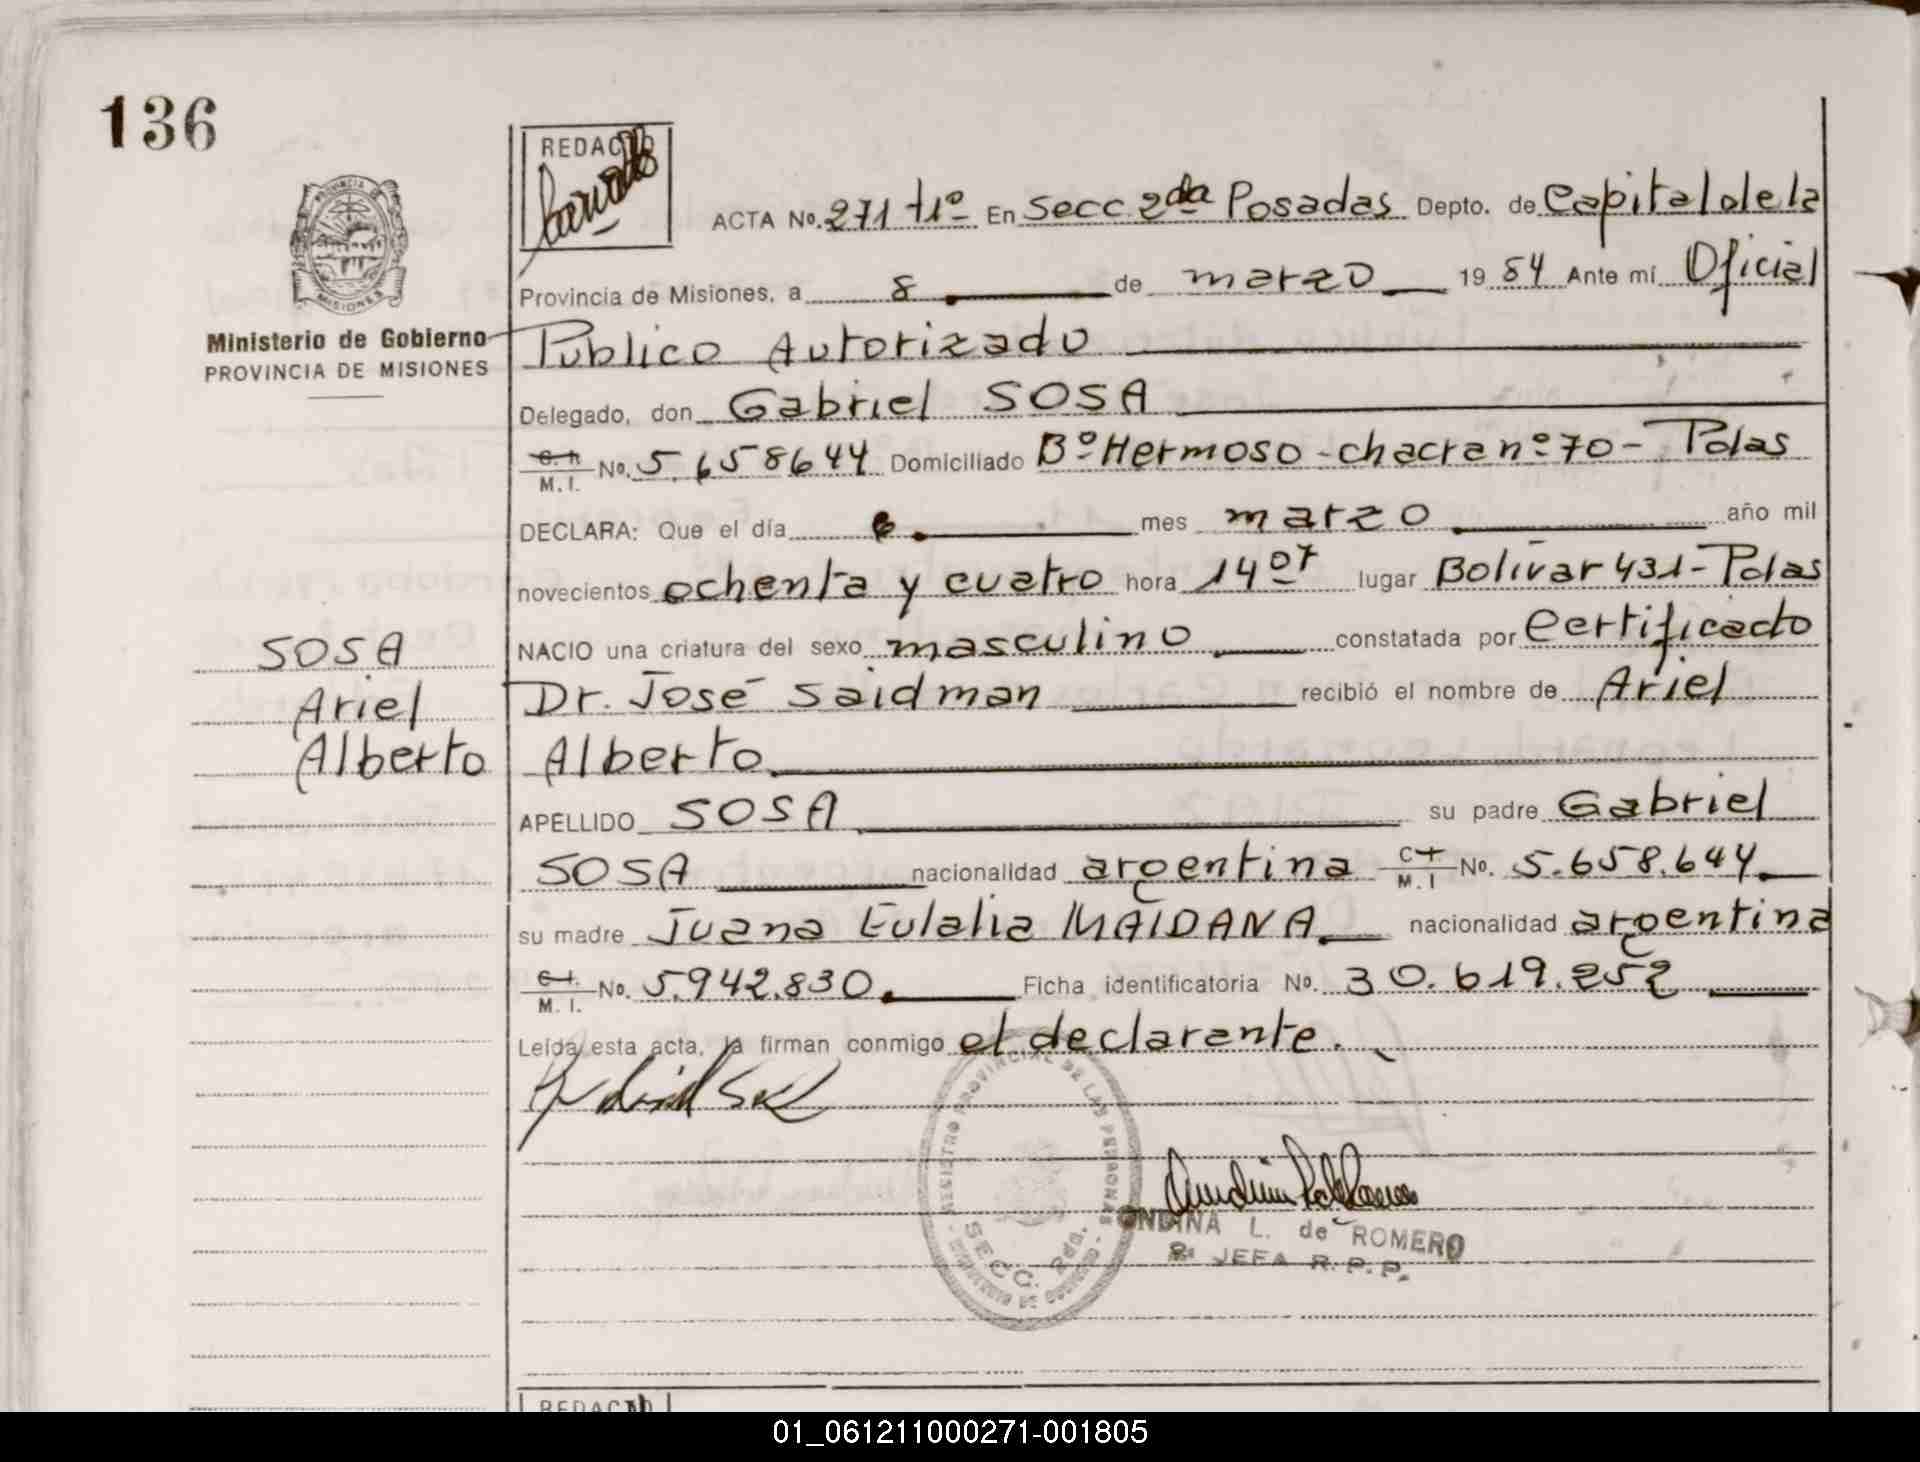 136
REDACTO
ACTA No. 271 t1º En Secc 2da Posadas Depto. de Capital de la
PROVINCIA DE MISIONES
Provincia de Misiones, a 8 de marzo 1984 Ante mí Oficial
Ministerio de Gobierno
PROVINCIA DE MISIONES
Público Autorizado
Delegado, don Gabriel SOSA
M. I. No. 5.658644 Domiciliado Bº Hermoso - chacra nº 70 - Pdas
DECLARA: Que el día 6 mes marzo año mil
novecientos ochenta y cuatro hora 14 07 lugar Bolívar 431 - Pdas
SOSA
NACIO una criatura del sexo masculino constatada por Certificado
Ariel
Dr. José Saidman recibió el nombre de Ariel
Alberto
Alberto
APELLIDO SOSA su padre Gabriel
SOSA nacionalidad argentina C.I. M.I No. 5.658.644
su madre Juana Eulalia MAIDANA nacionalidad argentina
C.I. M. I. No. 5.942.830 Ficha identificatoria No. 30.619.252
Leída esta acta, la firman conmigo el declarante.
REGISTRO PROVINCIAL DE LAS PERSONAS
SECC. 2da.
ONDINA L. de ROMERO
JEFA R. P. P.
REDACTO
01_061211000271-001805